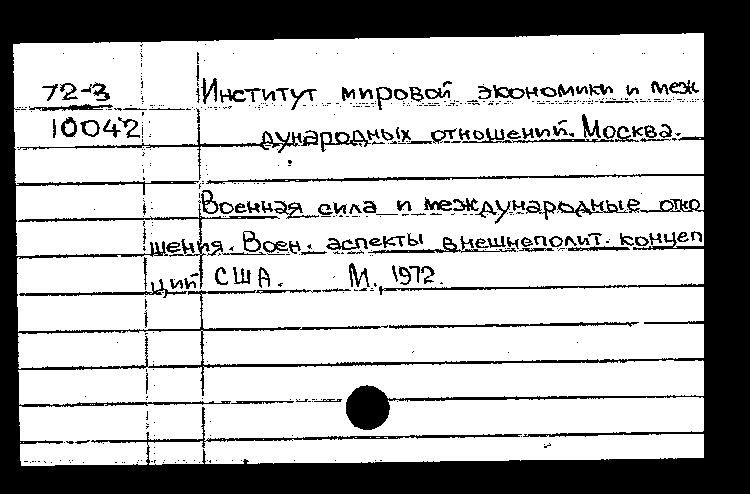 72-3 Институт мировой экономики и меж
10042 дународных отношений. Москва.
Военная сила и международные отно
шения. Воен. аспекты внешнеполит. концеп
ций США. М., 1972.